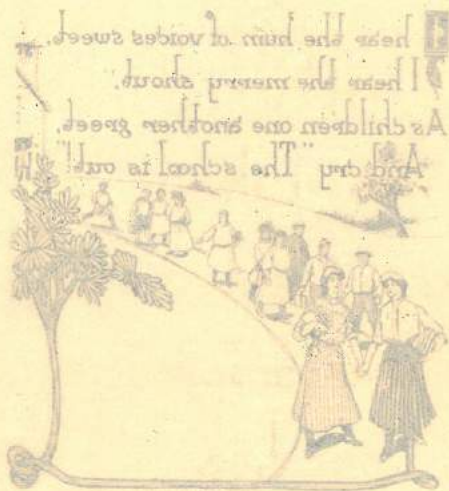 I hear the hum of voices sweet,
I hear the merry shout,
As children one another greet,
And cry "The school is out!"